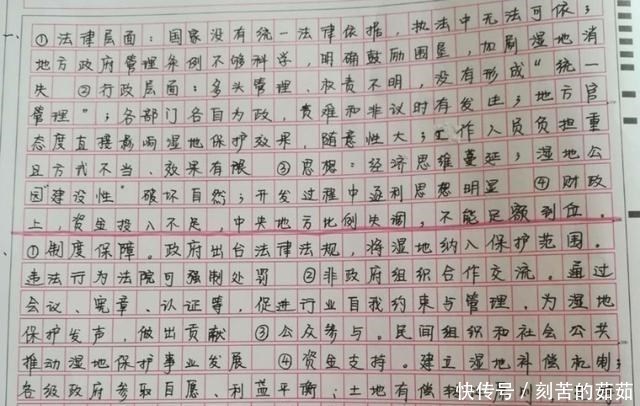 一、①法律层面：国家没有统一法律依据，执法中无法可依；
地方政府管理条例不够科学，明确鼓励围垦，加剧湿地消
失 ②行政层面：多头管理、权责不明，没有形成“统一
管理”；各部门各自为政，责难和非议时有发生；地方官
态度直接影响湿地保护效果，随意性大；工作人员负担重
且方式不当、效果有限 ③思想：经济思维蔓延；湿地公
园“建设性”破坏自然；开发过程中逐利思想明显 ④财政
上，资金投入不足，中央地方比例失调，不能足额到位。
①制度保障。政府出台法律法规，将湿地纳入保护范围。
违法行为法院可强制处罚 ②非政府组织合作交流。通过
会议、宪章、认证等，促进行业自我约束与管理，为湿地
保护发声，做出贡献 ③公众参与。民间组织和社会公共
推动湿地保护事业发展 ④资金支持。建立湿地补偿机制；
各级政府参取自愿、利益平衡；土地有偿
快传号/刻苦的茹茹